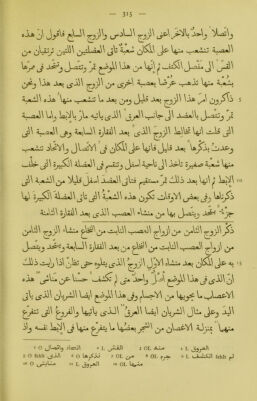 — 315 —
واتصلا واحدٌ بالاخر اعنى الزوج السادس والزوج السابع فاقول انّ هذه
العصبة تتشعب منها على المكان شعبةٌ تأتى العضلتين اللتين ترتقيان من
القسّ الى مفصل الكتف ثم انّها من هذا الموضع تمرّ وتتصل وتتّحد فى مرّها
بشعبة منها تذهب عرضًا بعصبة اخرى من الزوج الذى بعد هذا ونحن
ذاكرون امر هذا الزوج بعد قليل ومن بعد ما تتشعب منها هذه الشعبة
تمرّ وتتصل بالعضد الى جانب العرق الذى يأتيه مارّ بالإبط واما العصبة
التى قلت انها تخالط الزوج الذى بعد الفقارة السابعة وهى العصبة التى
وعدتُ بذكرها بعد قليل فانها على المكان فى الاتصال والاتحاد تتشعب
منها شعبة صغيرة تاخذ الى ناحية اسفل وتنقسم فى العضلة الكبيرة التى خلف
الإبط ثم انها بعد ذلك تمرّ مستقيمة فتأتى العضد اسفل قليلا من الشعبة التى
ذكرناها وفى بعض الاوقات تكون هذه الشعبة التى تأتى العضلة الكبيرة لها
جزءٌ يتّحد ويتصل بها من منشاء العصب الذى بعد الفقارة الثامنة
ذكر الزوج الثامن من ازواج العصب النابت من النخاع الزوج الثامن
من ازواج العصب النابت من النخاع من بعد الفقارة السابعة ويتّحد ويتصل
به على المكان بعد منشاء الاوّل الزوج الذى يتلوه حتى تظنّ اذا رايت ذلك
انّ الذى فى هذا الموضع اصلٌ واحدٌ متى لم تكشف حسنًا عن منشأى هذه
الاعصاب ما يحويها من الاجسام وفى هذا الموضع ايضا الشريان الذى يأتى
اليد وعلى مثال الشريان ايضا العرق الذى يأتيها والفروع التى تتفرّع
منهما بمنزلة الاغصان من الشجر بعضها ما يتفرّع منها فى الإبط نفسه واذ